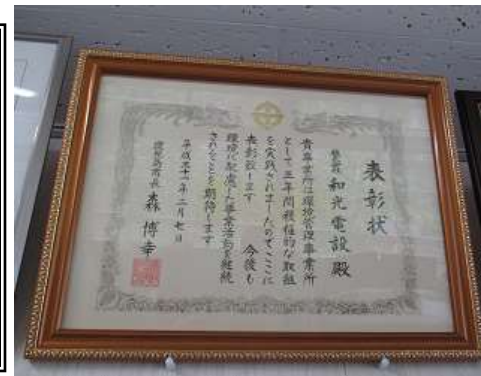 表彰状
和光電設 殿
貴事業所は環境管理事業所
として五年間積極的な取組
を実践されましたのでここに
表彰致します 今後も
環境に配慮した事業活動を継続
されることを期待します
平成二十一年二月七日
鹿児島市長 森 博幸